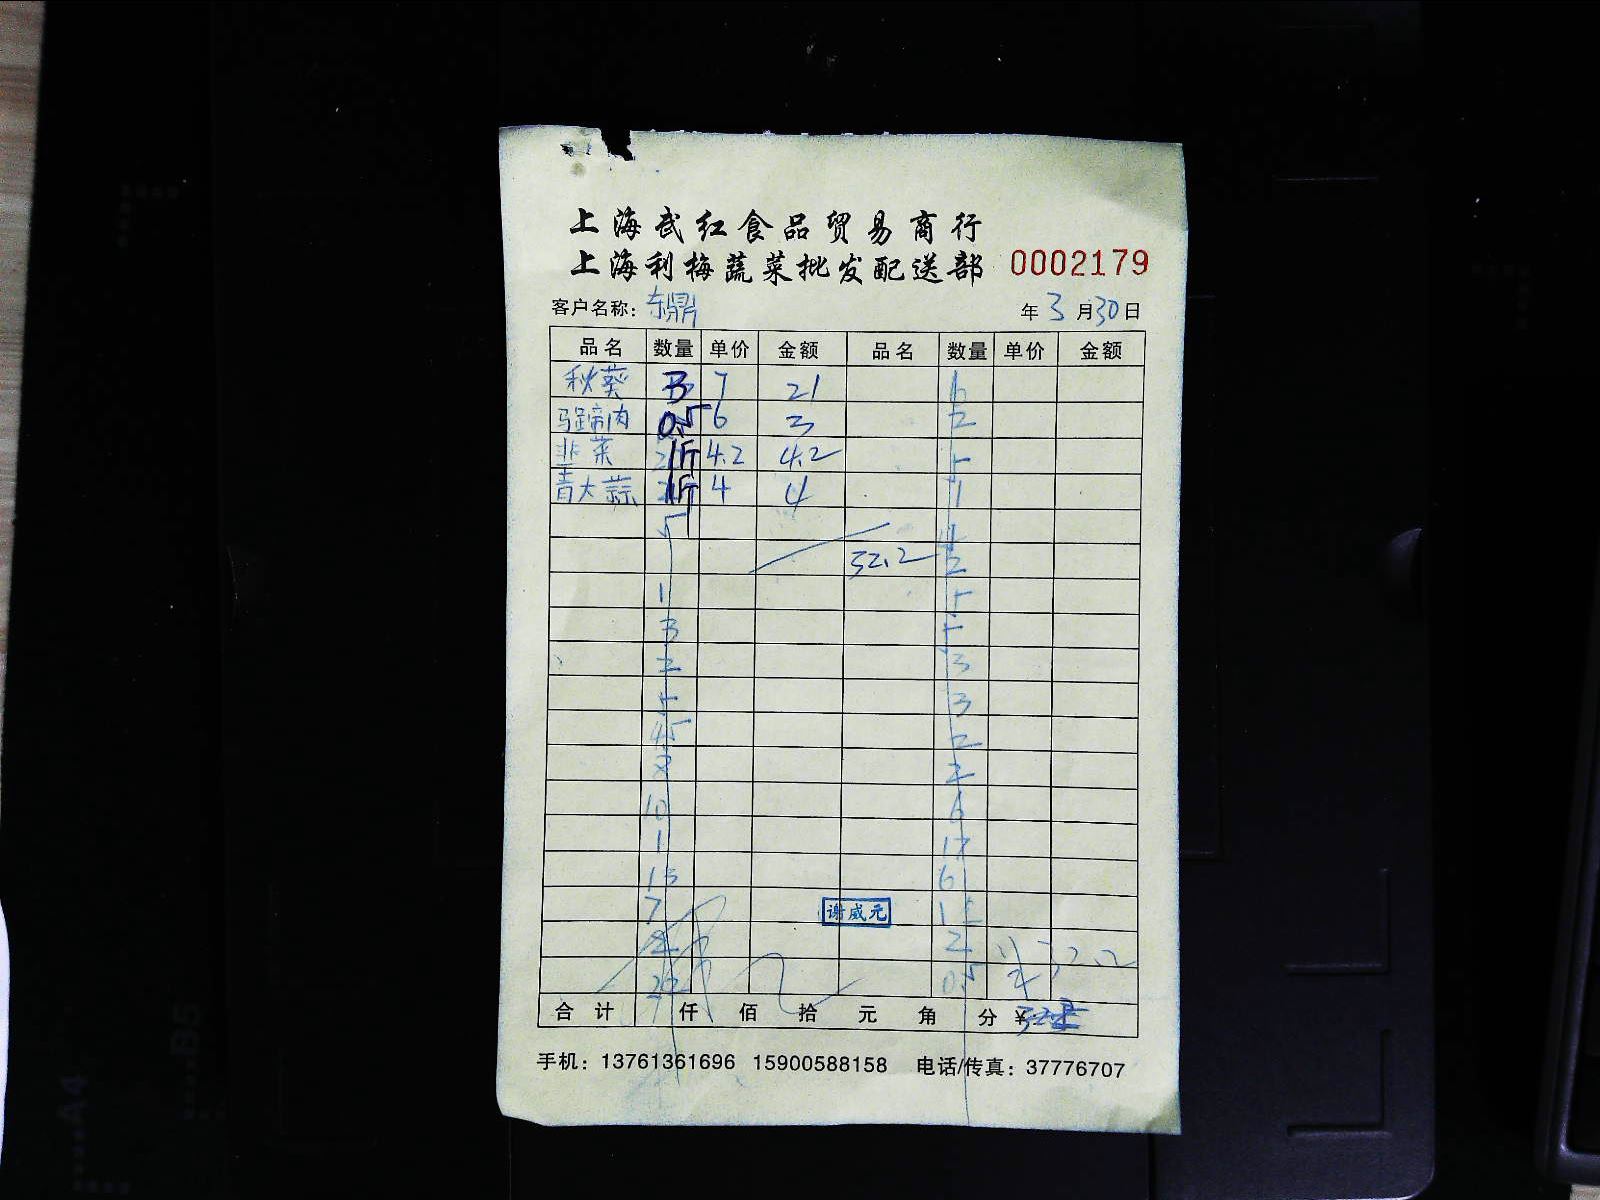 上海武红食品贸易商行
上海利梅蔬菜批发配送部 0002179
客户名称：东鼎 年 3 月 30 日
品名 数量 单价 金额 品名 数量 单价 金额
秋葵 3 7 21
马蹄肉 0.5 6 3 2
韭菜 1斤 4.2 4.2 5
青大蒜 1斤 4 4 1
5
32.2 2
1 5
3 5
2 3
5 3
45 2
8 2
10 6
1 17
15 6
7 谢威元 15
2
0.5 32.2
合计 仟 佰 拾 元 角 分 ¥
手机：13761361696 15900588158 电话/传真：37776707